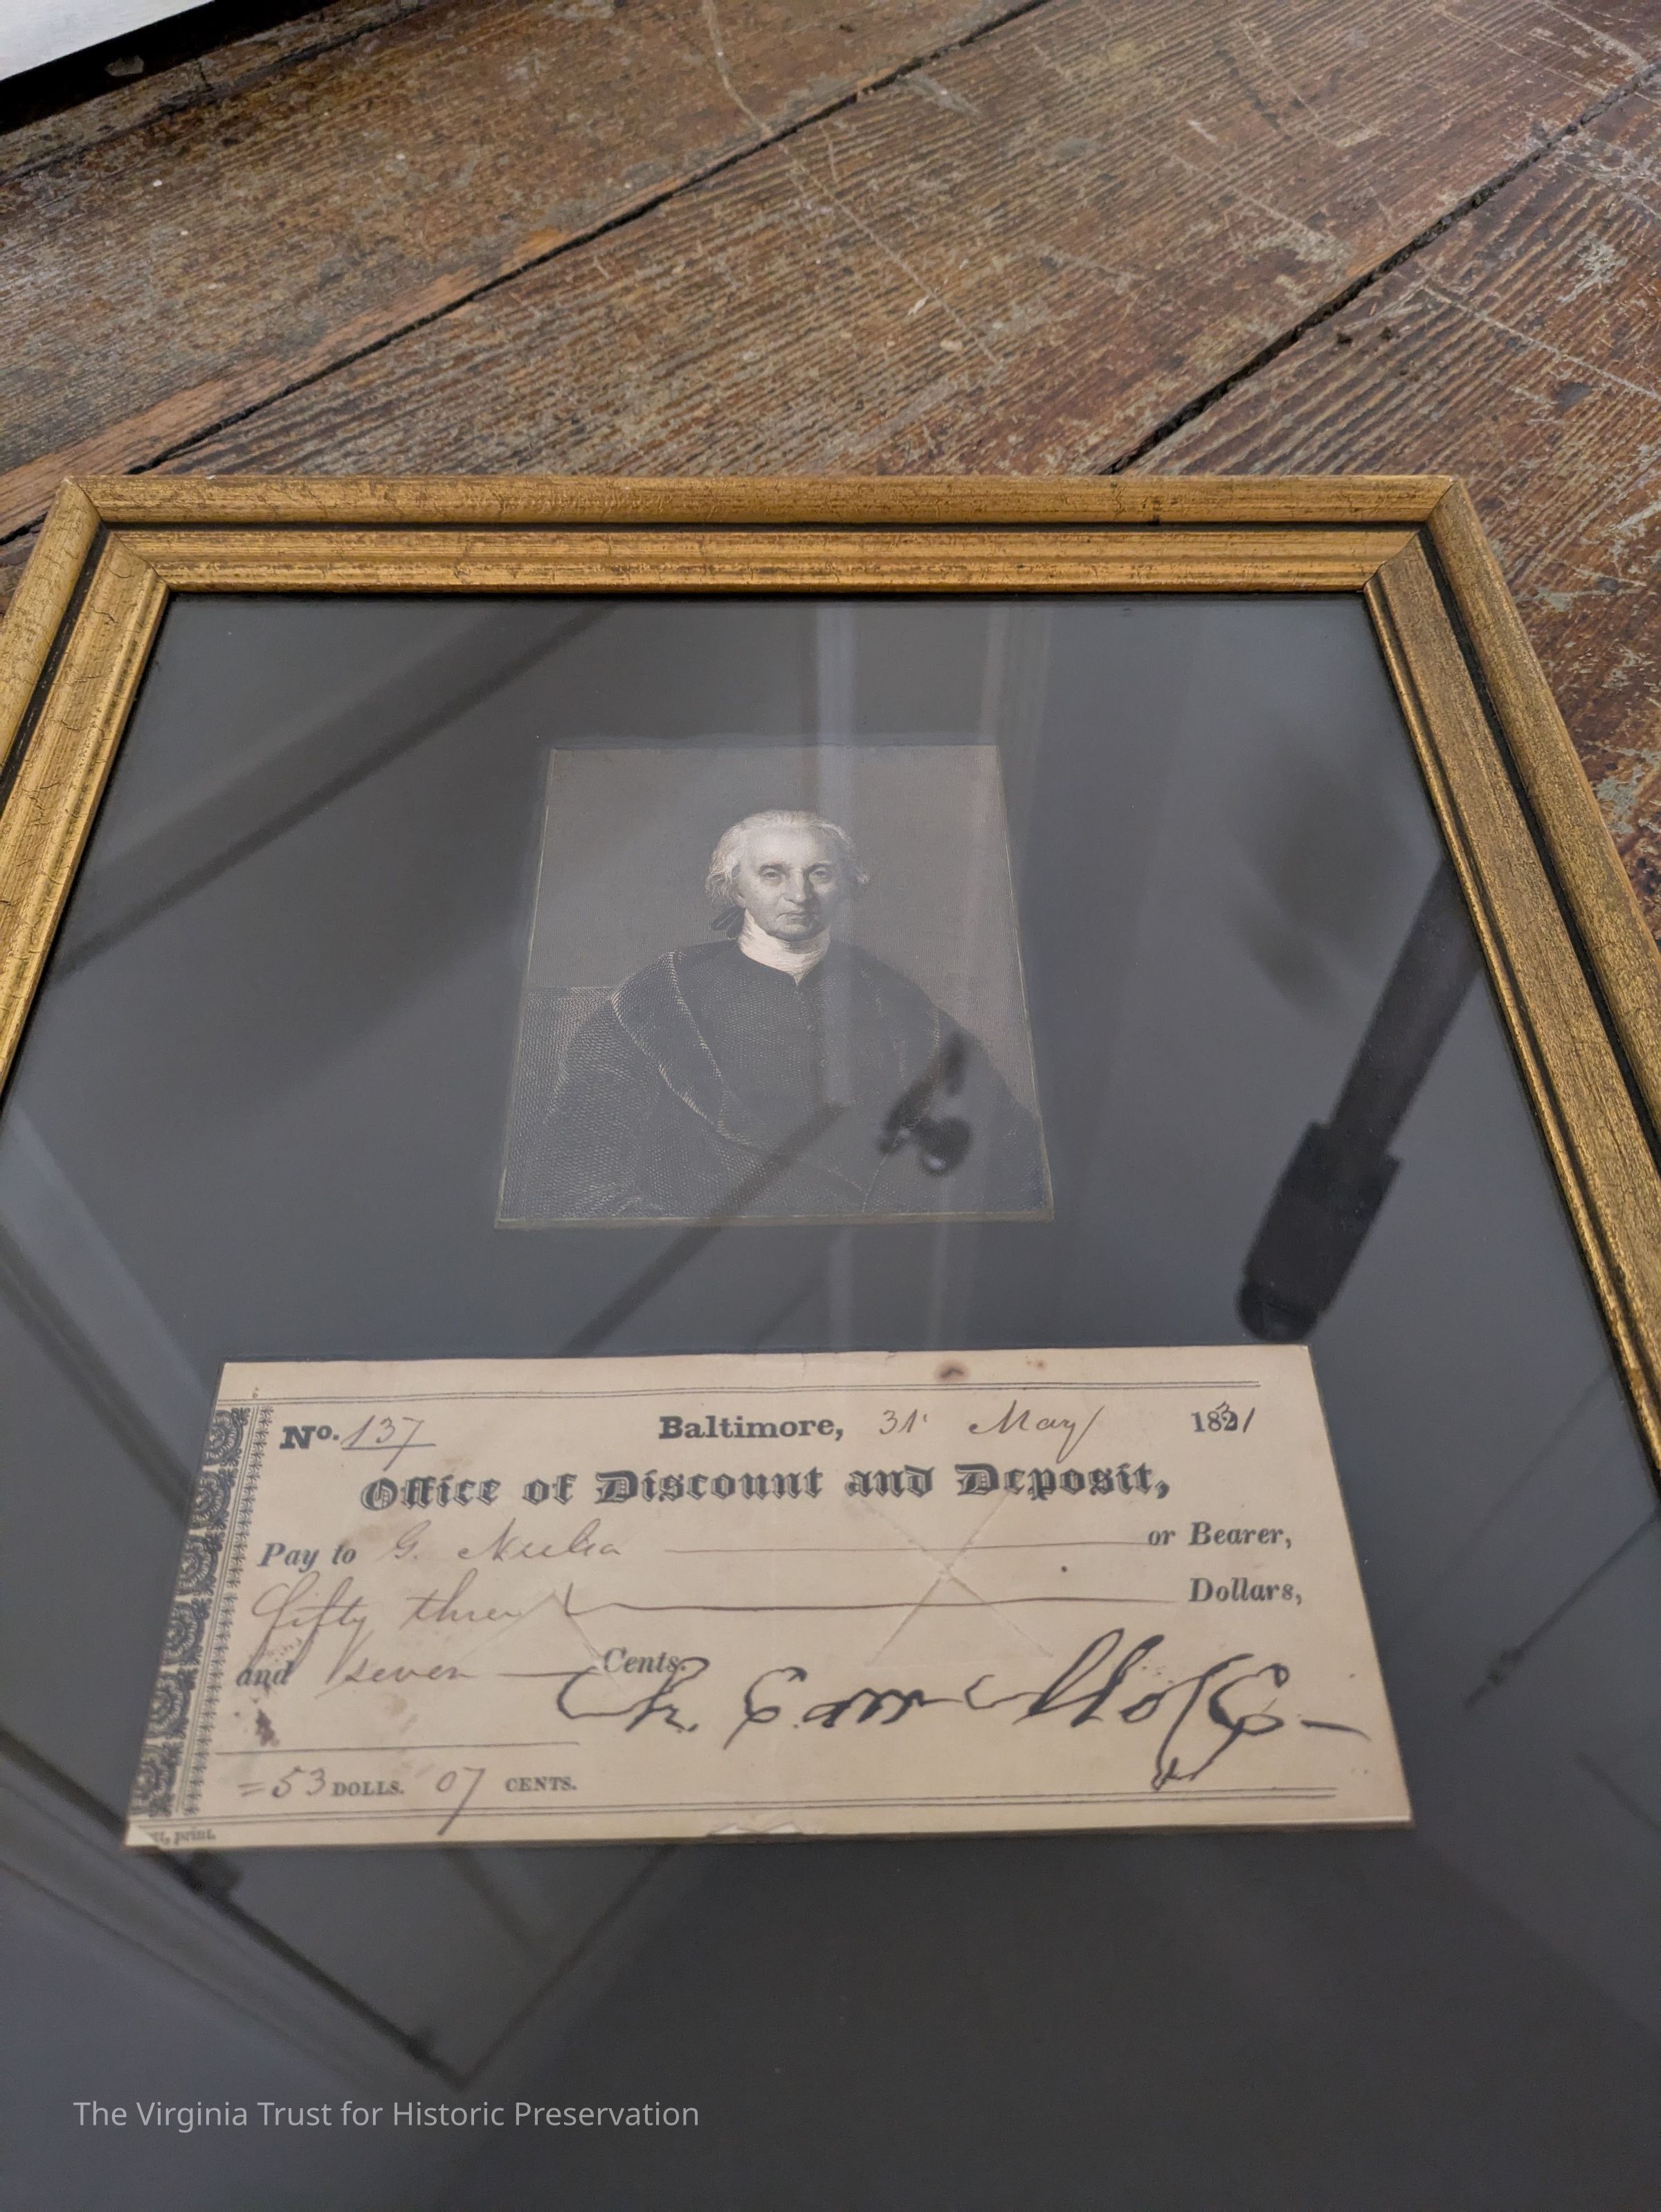 No. 137 Baltimore, 31 May 1831
Office of Discount and Deposit,
Pay to G. or Bearer,
fifty three Dollars,
and seven Cents.
Ch. Carroll of C
=53 DOLLS. 07 CENTS.
print.
The Virginia Trust for Historic Preservation